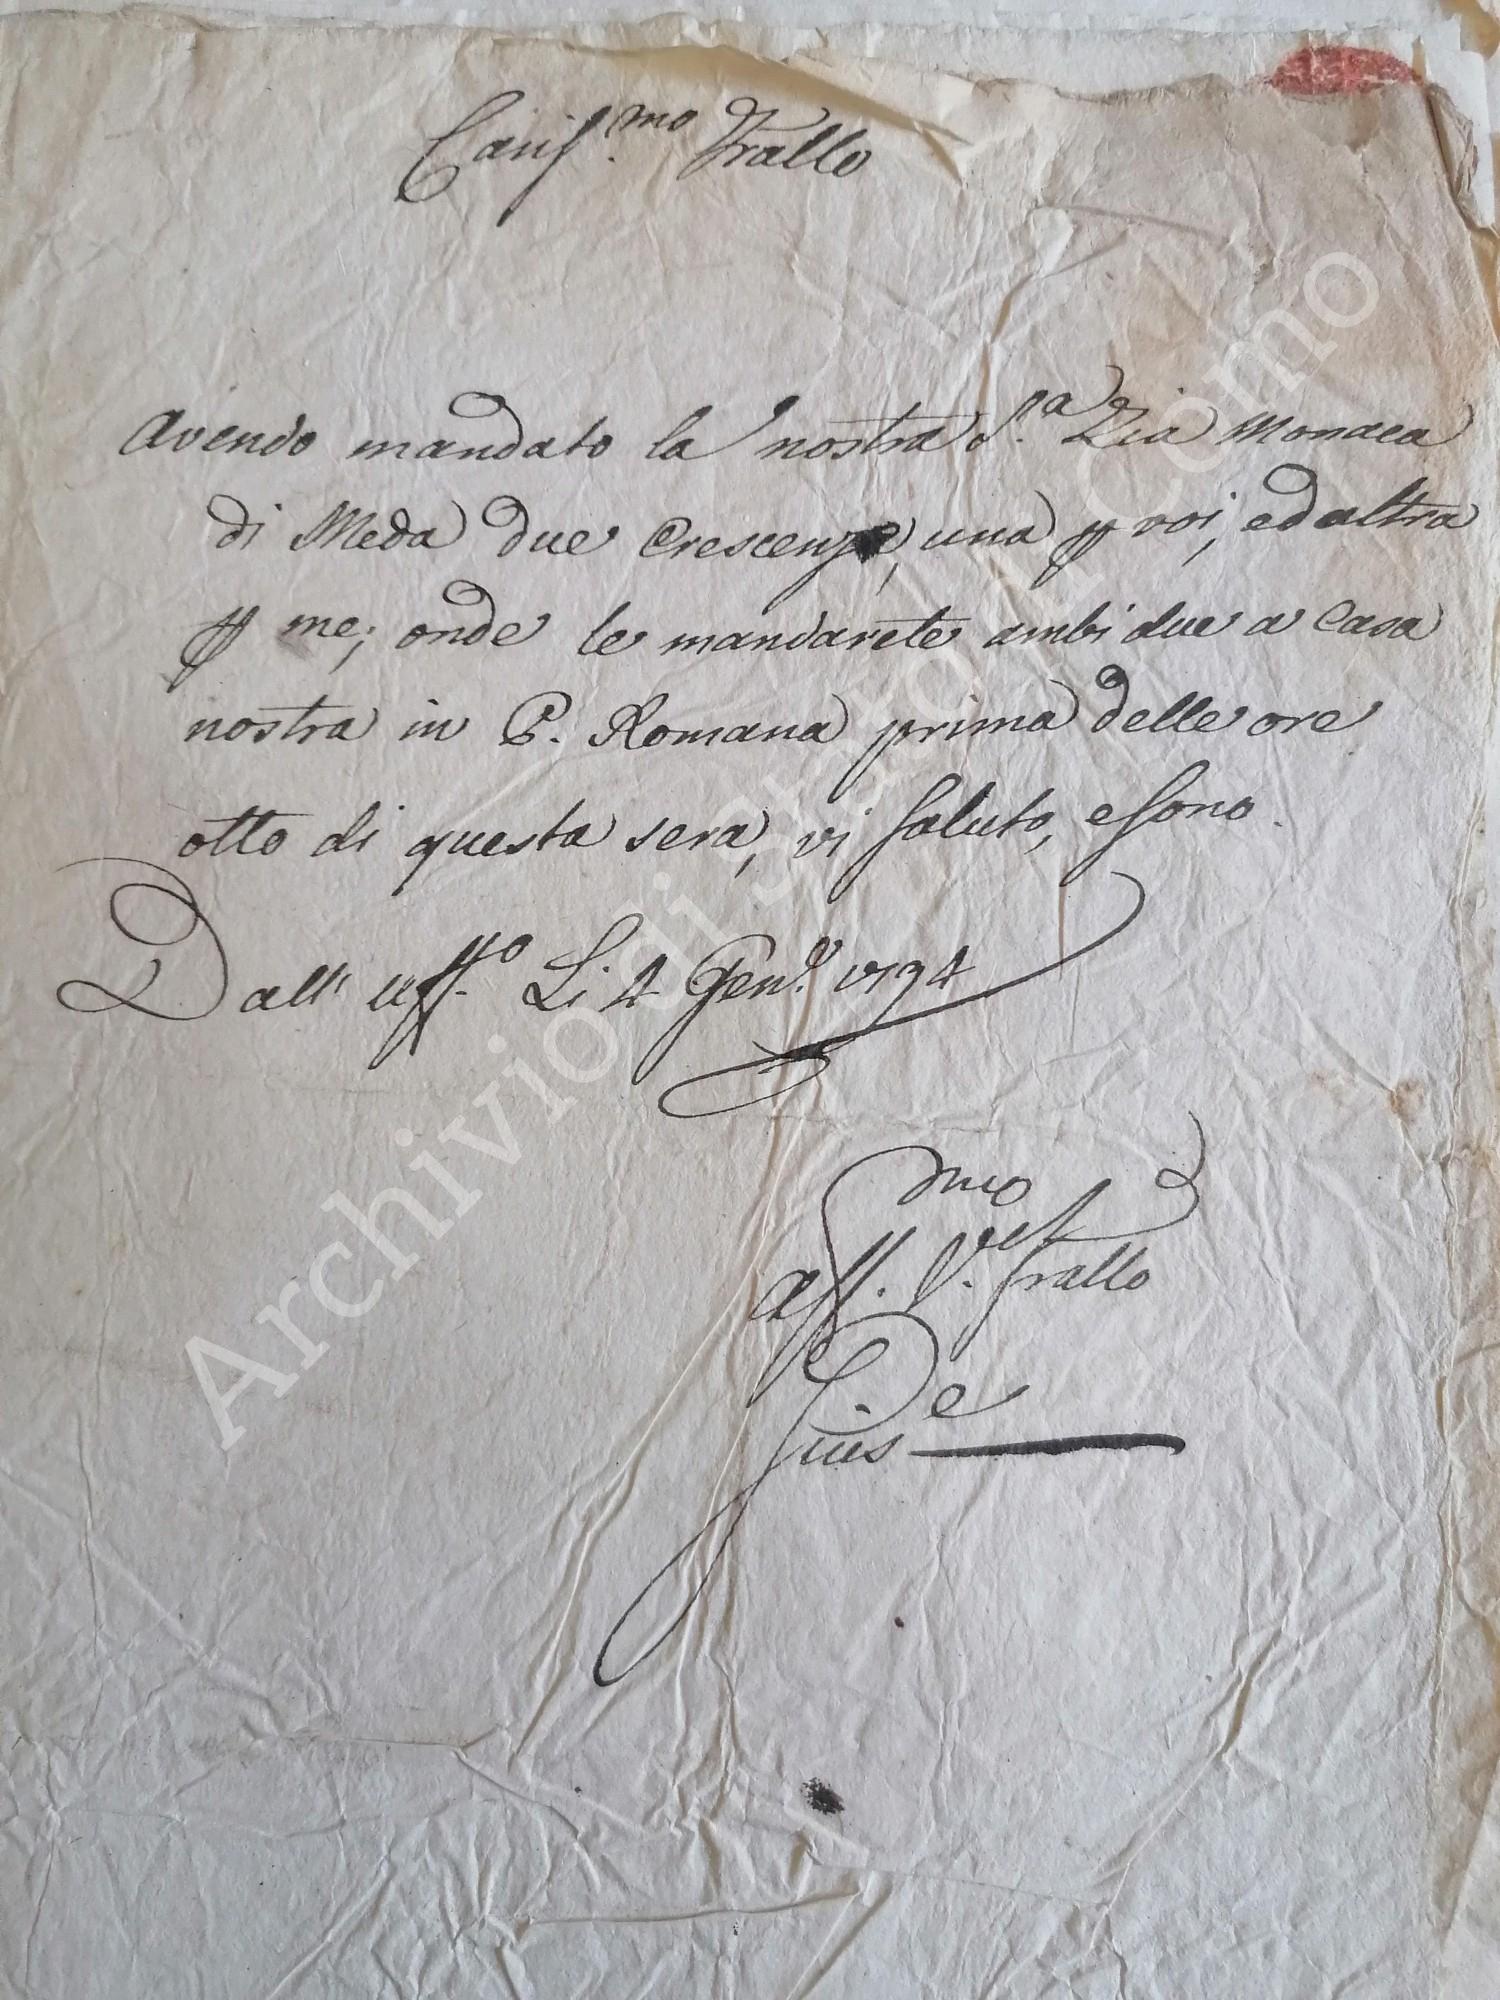 Caris.mo Frallo
Avendo mandato la nostra S.a Zia Monaca
di Meda due Crescenze, una p voi, ed altra
p me; onde le mandarete ambi due a Casa
nostra in P. Romana prima delle ore
otto di questa sera, vi saluto, e sono.
Dall' Uff.o Li 4 Gen.o 1794
Aff.mo V. frallo
Gius.e
Archivio di Stato di Como